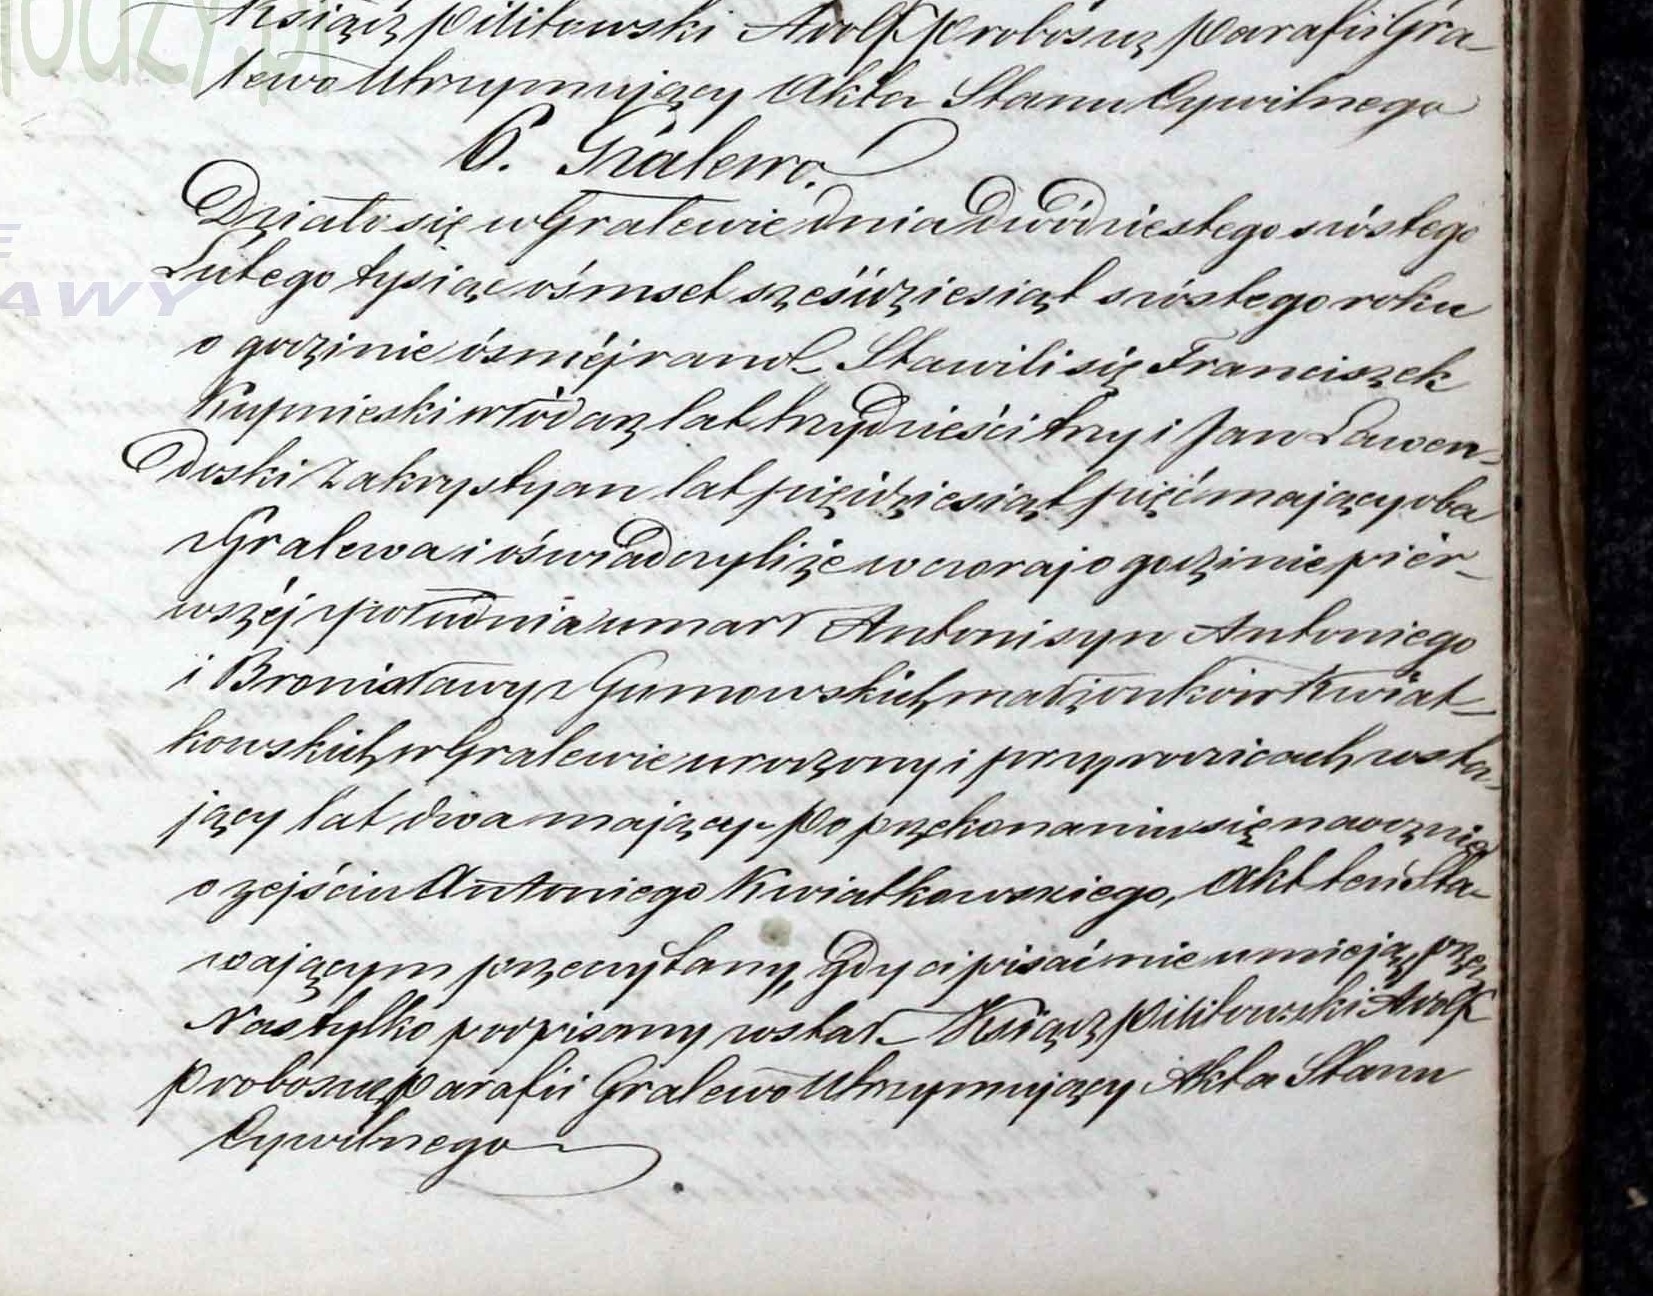 Ksiądz Pilitowski Adolf Proboszcz Parafii Gra-
lewo Utrzymujący Akta Stanu Cywilnego
6. Gralewo.
Działo się w Gralewie dnia Dwódziestego szóstego
Lutego tysiąc ośmset sześćdziesiąt szóstego roku
o godzinie ósméj rano. Stawili się Franciszek
Kupnieski włódarz lat trzydzieści trzy i Jan Lawen-
doski Zakrystyan lat pięćdziesiąt pięć mający oba
z Gralewa i oświadczyli że wczoraj o godzinie piér-
wszéj z południa umarł Antoni syn Antoniego
i Bronisławy z Gumowskich małżonków Kwiat-
kowskich w Gralewie urodzony i przy rodzicach zosta-
jący lat dwa mający. Po przekonaniu się naocznie
o zejściu Antoniego Kwiatkowskiego, Akt ten Sta-
wającym przeczytany, gdy ci pisać nie umieją, przez
Nas tylko podpisany został. Ksiądz Pilitowski Adolf
Proboszcz Parafii Gralewo Utrzymujący Akta Stanu
Cywilnego